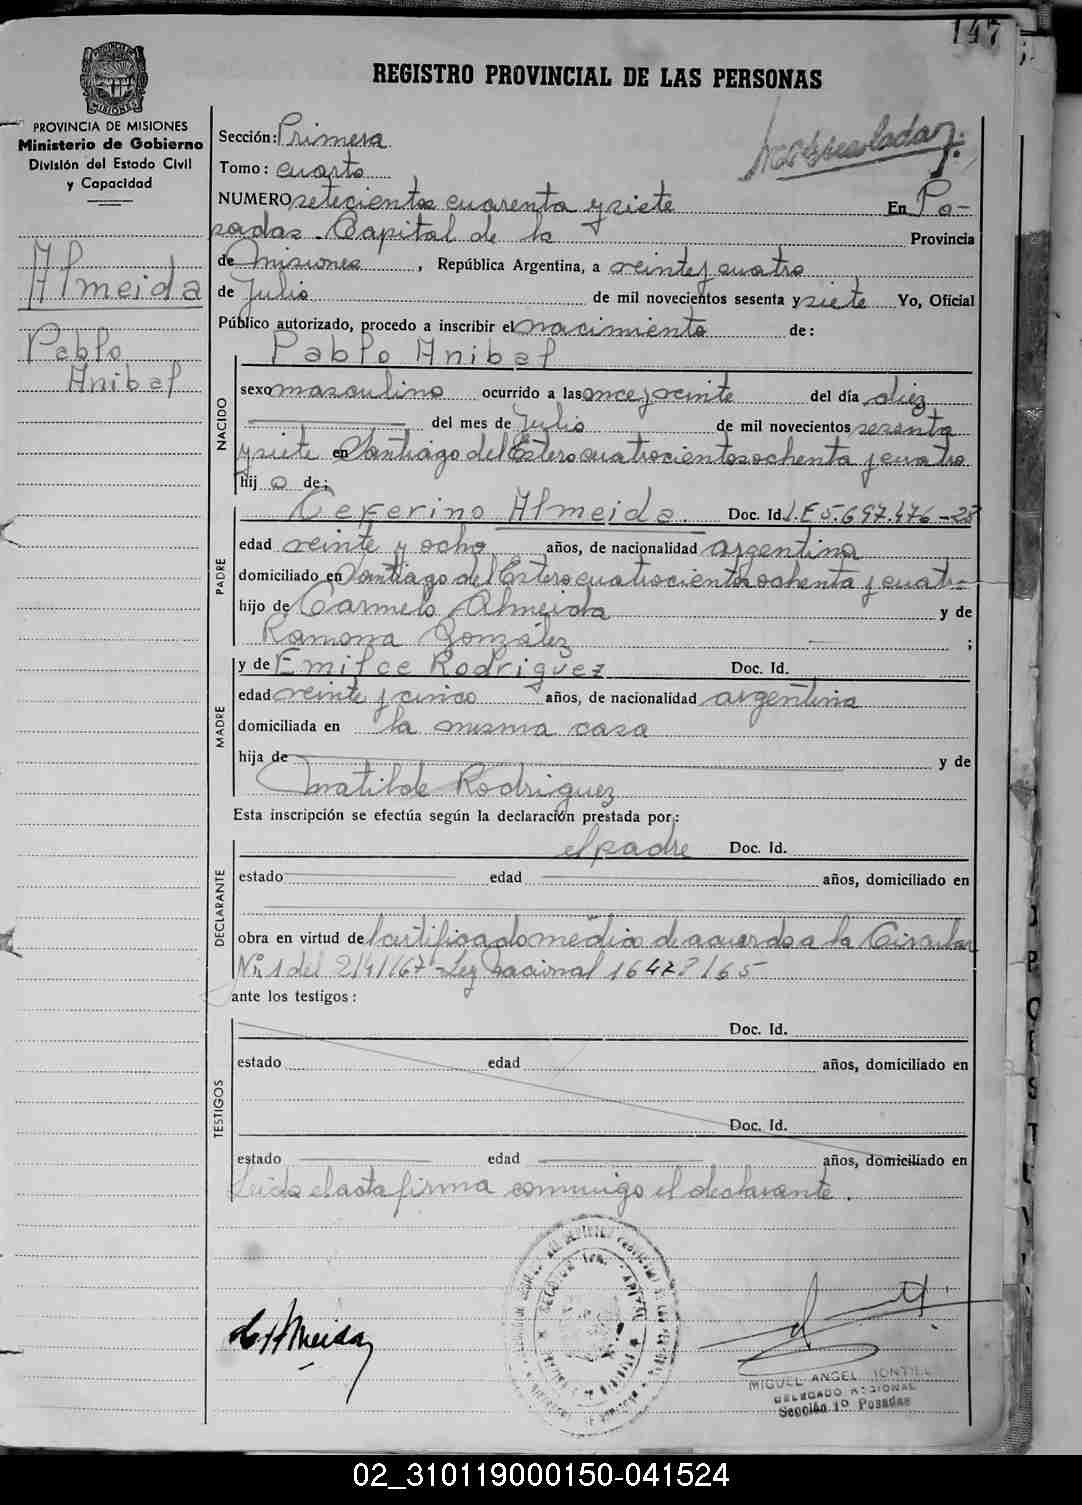 147
REGISTRO PROVINCIAL DE LAS PERSONAS
PROVINCIA DE MISIONES
Ministerio de Gobierno
División del Estado Civil
y Capacidad
Almeida
Pablo
Anibal
Sección: Primera
Tomo: cuarto
NUMERO setecientos cuarenta y siete En Po-
sadas. Capital de la Provincia
de Misiones, República Argentina, a veinte y cuatro
de Julio de mil novecientos sesenta y siete Yo, Oficial
Público autorizado, procedo a inscribir el nacimiento de:
NACIDO
Pablo Anibal
sexo masculino ocurrido a las once y veinte del día diez
del mes de Julio de mil novecientos sesenta
y siete en Santiago del Estero cuatrocientos ochenta y cuatro
hij o de:
PADRE
Ceferino Almeida. Doc. Id. L.E 5.697.476-28
edad veinte y ocho años, de nacionalidad argentina
domiciliado en Santiago del Estero cuatrocientos ochenta y cuatro
hijo de Carmelo Almeida y de
Ramona González ;
MADRE
y de Emilce Rodriguez Doc. Id.
edad veinte y cinco años, de nacionalidad argentina
domiciliada en la misma casa
hija de y de
Matilde Rodriguez
Esta inscripción se efectúa según la declaración prestada por:
DECLARANTE
el padre Doc. Id.
estado edad años, domiciliado en
obra en virtud de certificado médico de acuerdo a la Circular
Nº 1 del 2/4/67 - Ley Nacional 16478/65
ante los testigos:
TESTIGOS
Doc. Id.
estado edad años, domiciliado en
Doc. Id.
estado edad años, domiciliado en
Leida el acta firma conmigo el declarante.
MIGUEL ANGEL MONTIEL
DELEGADO REGIONAL
Sección 1º Posadas
02_310119000150-041524